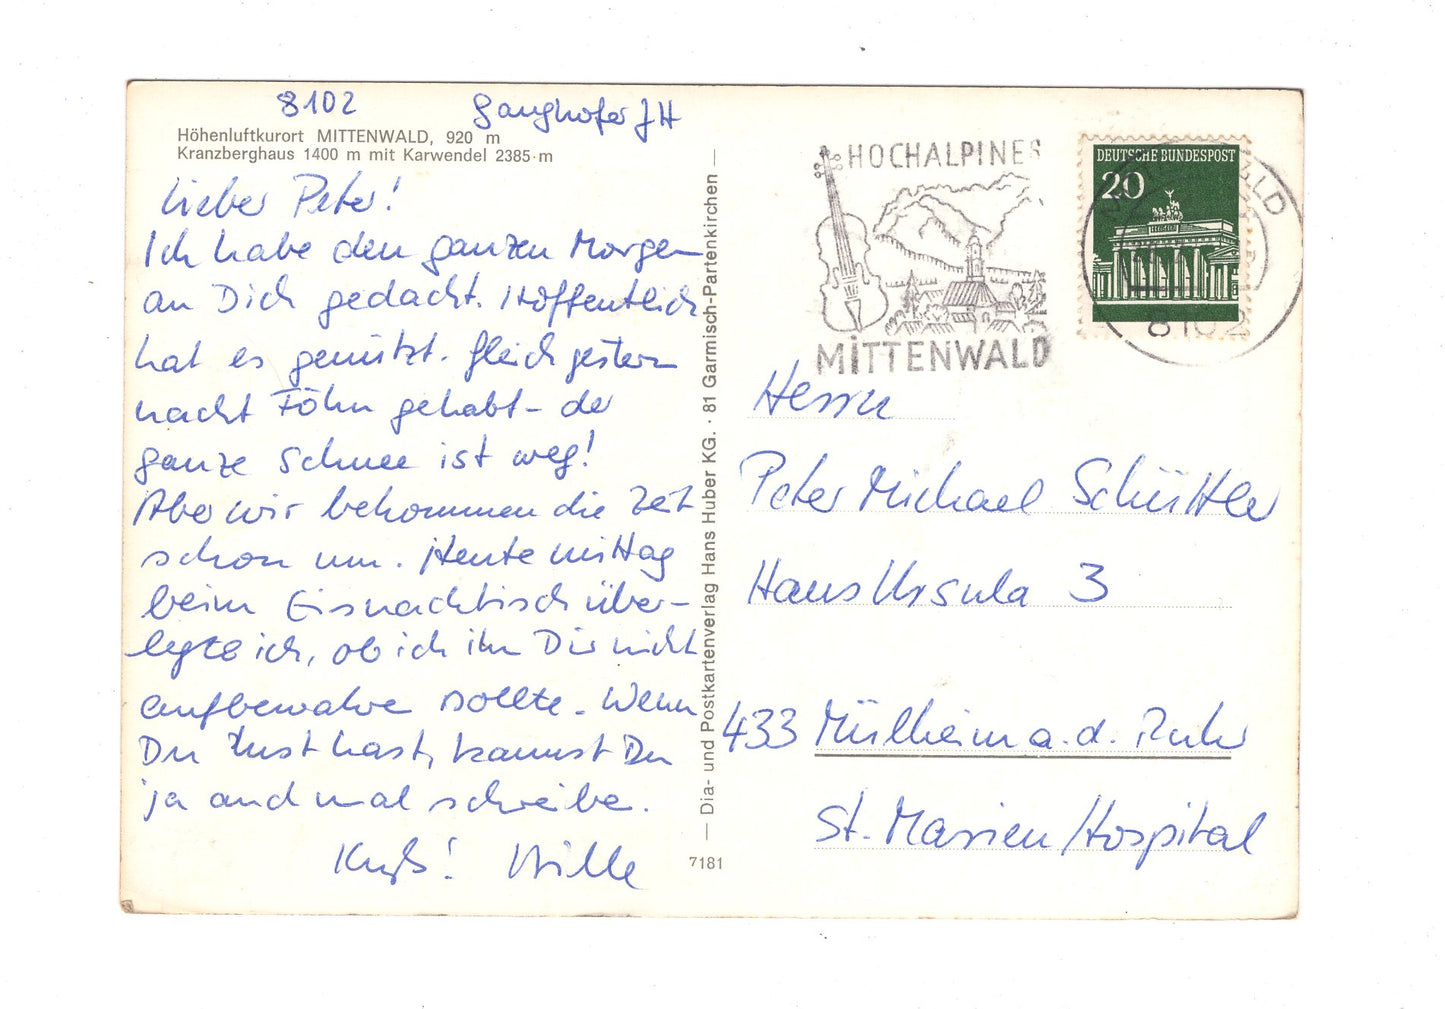 8102 Ganghofer JH
Höhenluftkurort MITTENWALD, 920 m
Kranzberghaus 1400 m mit Karwendel 2385 m
Lieber Peter!
Ich habe den ganzen Morgen
an Dich gedacht. Hoffentlich
hat es genützt. Gleich gestern
nacht Föhn gehabt - der
ganze Schnee ist weg!
Aber wir bekommen die Zeit
schon um. Heute mittag
beim Eisnachtisch über-
legte ich, ob ich ihn Dir nicht
aufbewahre sollte. Wenn
Du Lust hast, kannst Du
ja auch mal schreibe.
Kuß!
— Dia- und Postkartenverlag Hans Huber KG. · 81 Garmisch-Partenkirchen —
7181
HOCHALPINES
MITTENWALD
DEUTSCHE BUNDESPOST
20
8102
Herrn
Peter Michael Schüttler
Haus Ursula 3
433 Mülheim a. d. Ruhr
St. Marien Hospital